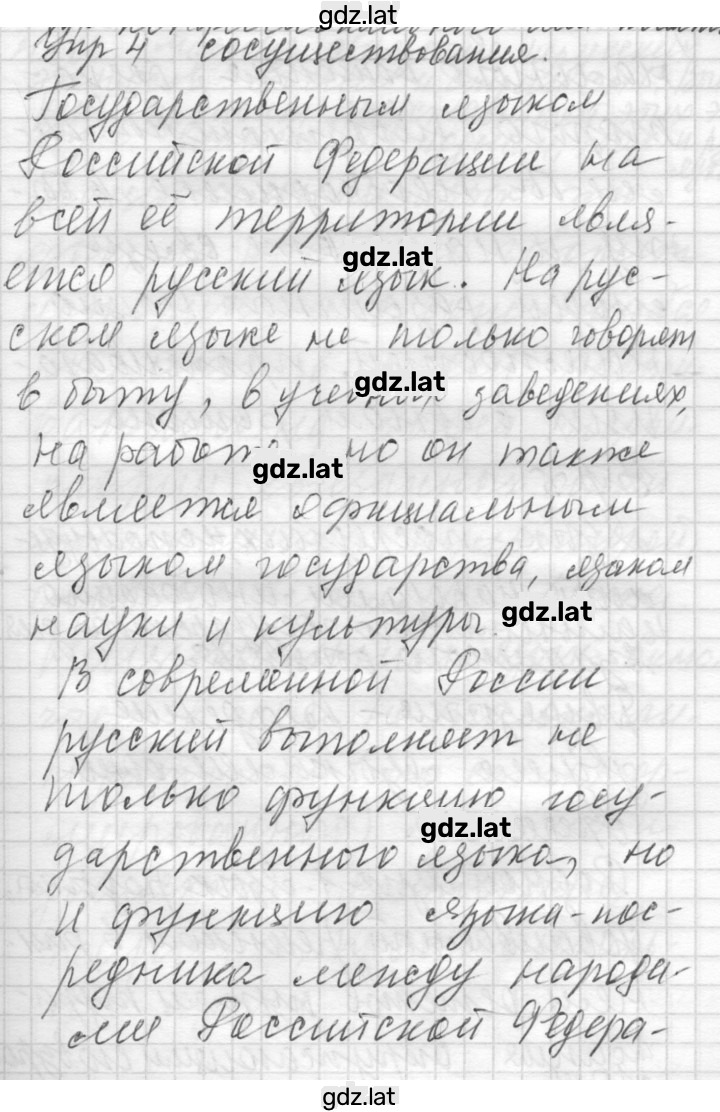 gdz.lat
Упр 4 сосуществования.
Государственным языком
Российской Федерации на
всей её территории явля-
gdz.lat
ется русский язык. На рус-
ском языке не только говорят
gdz.lat
в быту, в учебных заведениях,
на работе, но он также
gdz.lat
является официальным
языком государства, языком
gdz.lat
науки и культуры.
В современной России
русский выполняет не
только функцию госу-
gdz.lat
дарственного языка, но
и функцию языка-пос-
редника между народа-
ми Российской Федера-
gdz.lat